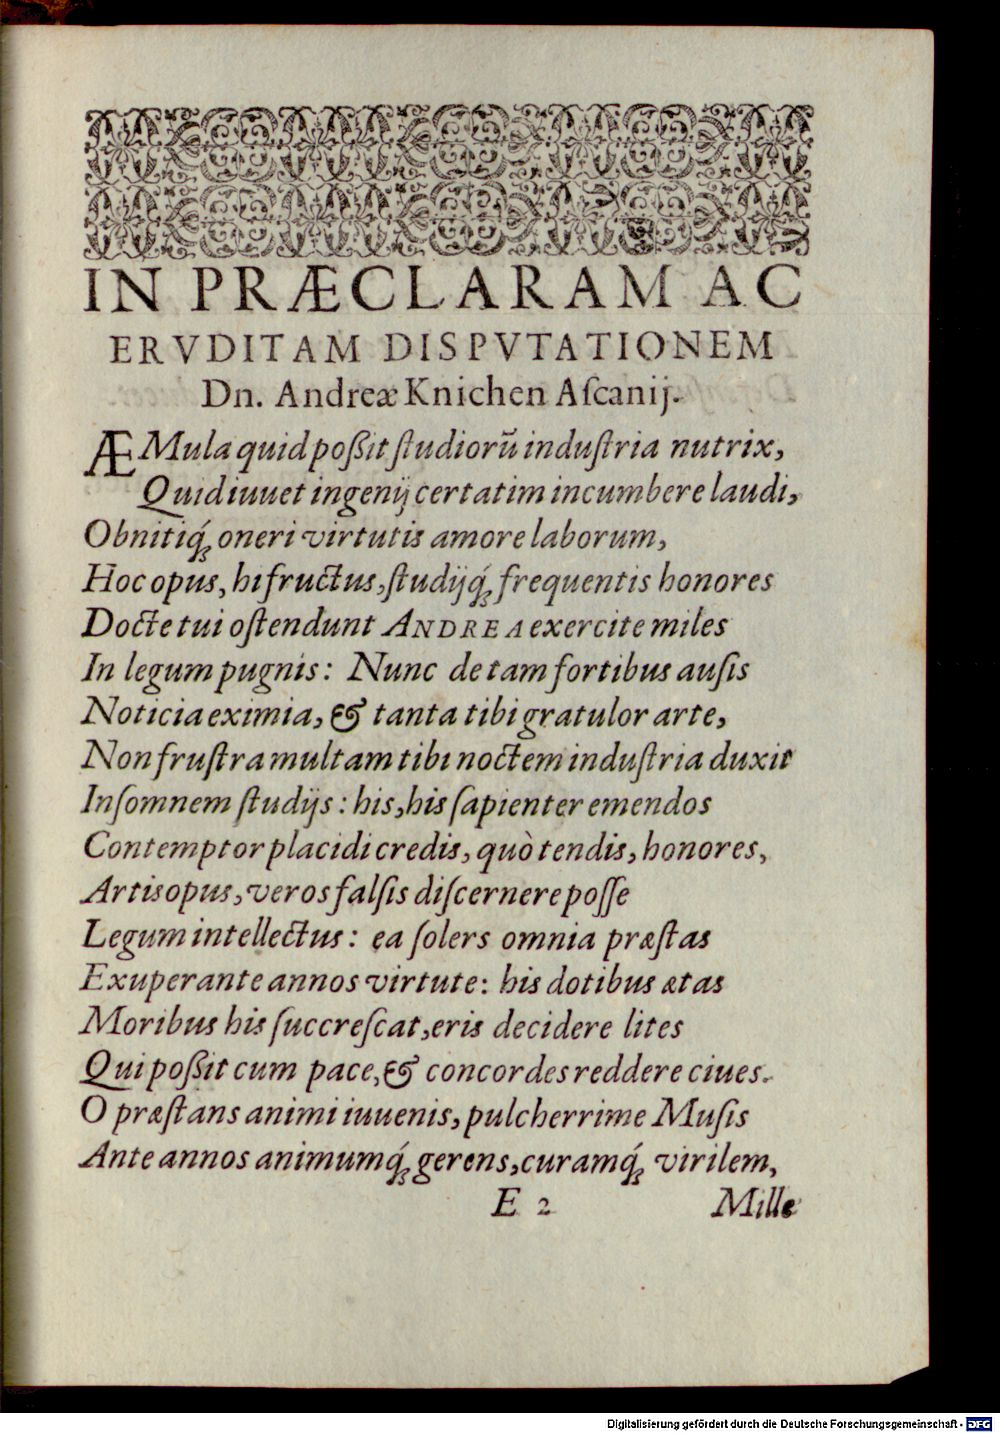 IN PRÆCLARAM AC
ERVDITAM DISPVTATIONEM
Dn. Andreæ Knichen Aſcanij.
ÆMula quid poßit ſtudiorũ induſtria nutrix,
Quid iuuet ingenij certatim incumbere laudi,
Obnitiq́; oneri virtutis amore laborum,
Hoc opus, hi fructus, ſtudijq́; frequentis honores
Docte tui oſtendunt ANDREA exercite miles
In legum pugnis: Nunc de tam fortibus auſis
Noticia eximia, & tanta tibi gratulor arte,
Non fruſtra multam tibi noctem induſtria duxit
Inſomnem ſtudijs: his, his ſapienter emendos
Contemptor placidi credis, quò tendis, honores,
Artis opus, veros falſis diſcernere poſſe
Legum intellectus: ea ſolers omnia præſtas
Exuperante annos virtute: his dotibus ætas
Moribus his ſuccreſcat, eris decidere lites
Qui poßit cum pace, & concordes reddere ciues.
O præſtans animi iuuenis, pulcherrime Muſis
Ante annos animumq́; gerens, curamq́; virilem,
E 2 Mille
Digitalisierung gefördert durch die Deutsche Forschungsgemeinschaft - DFG